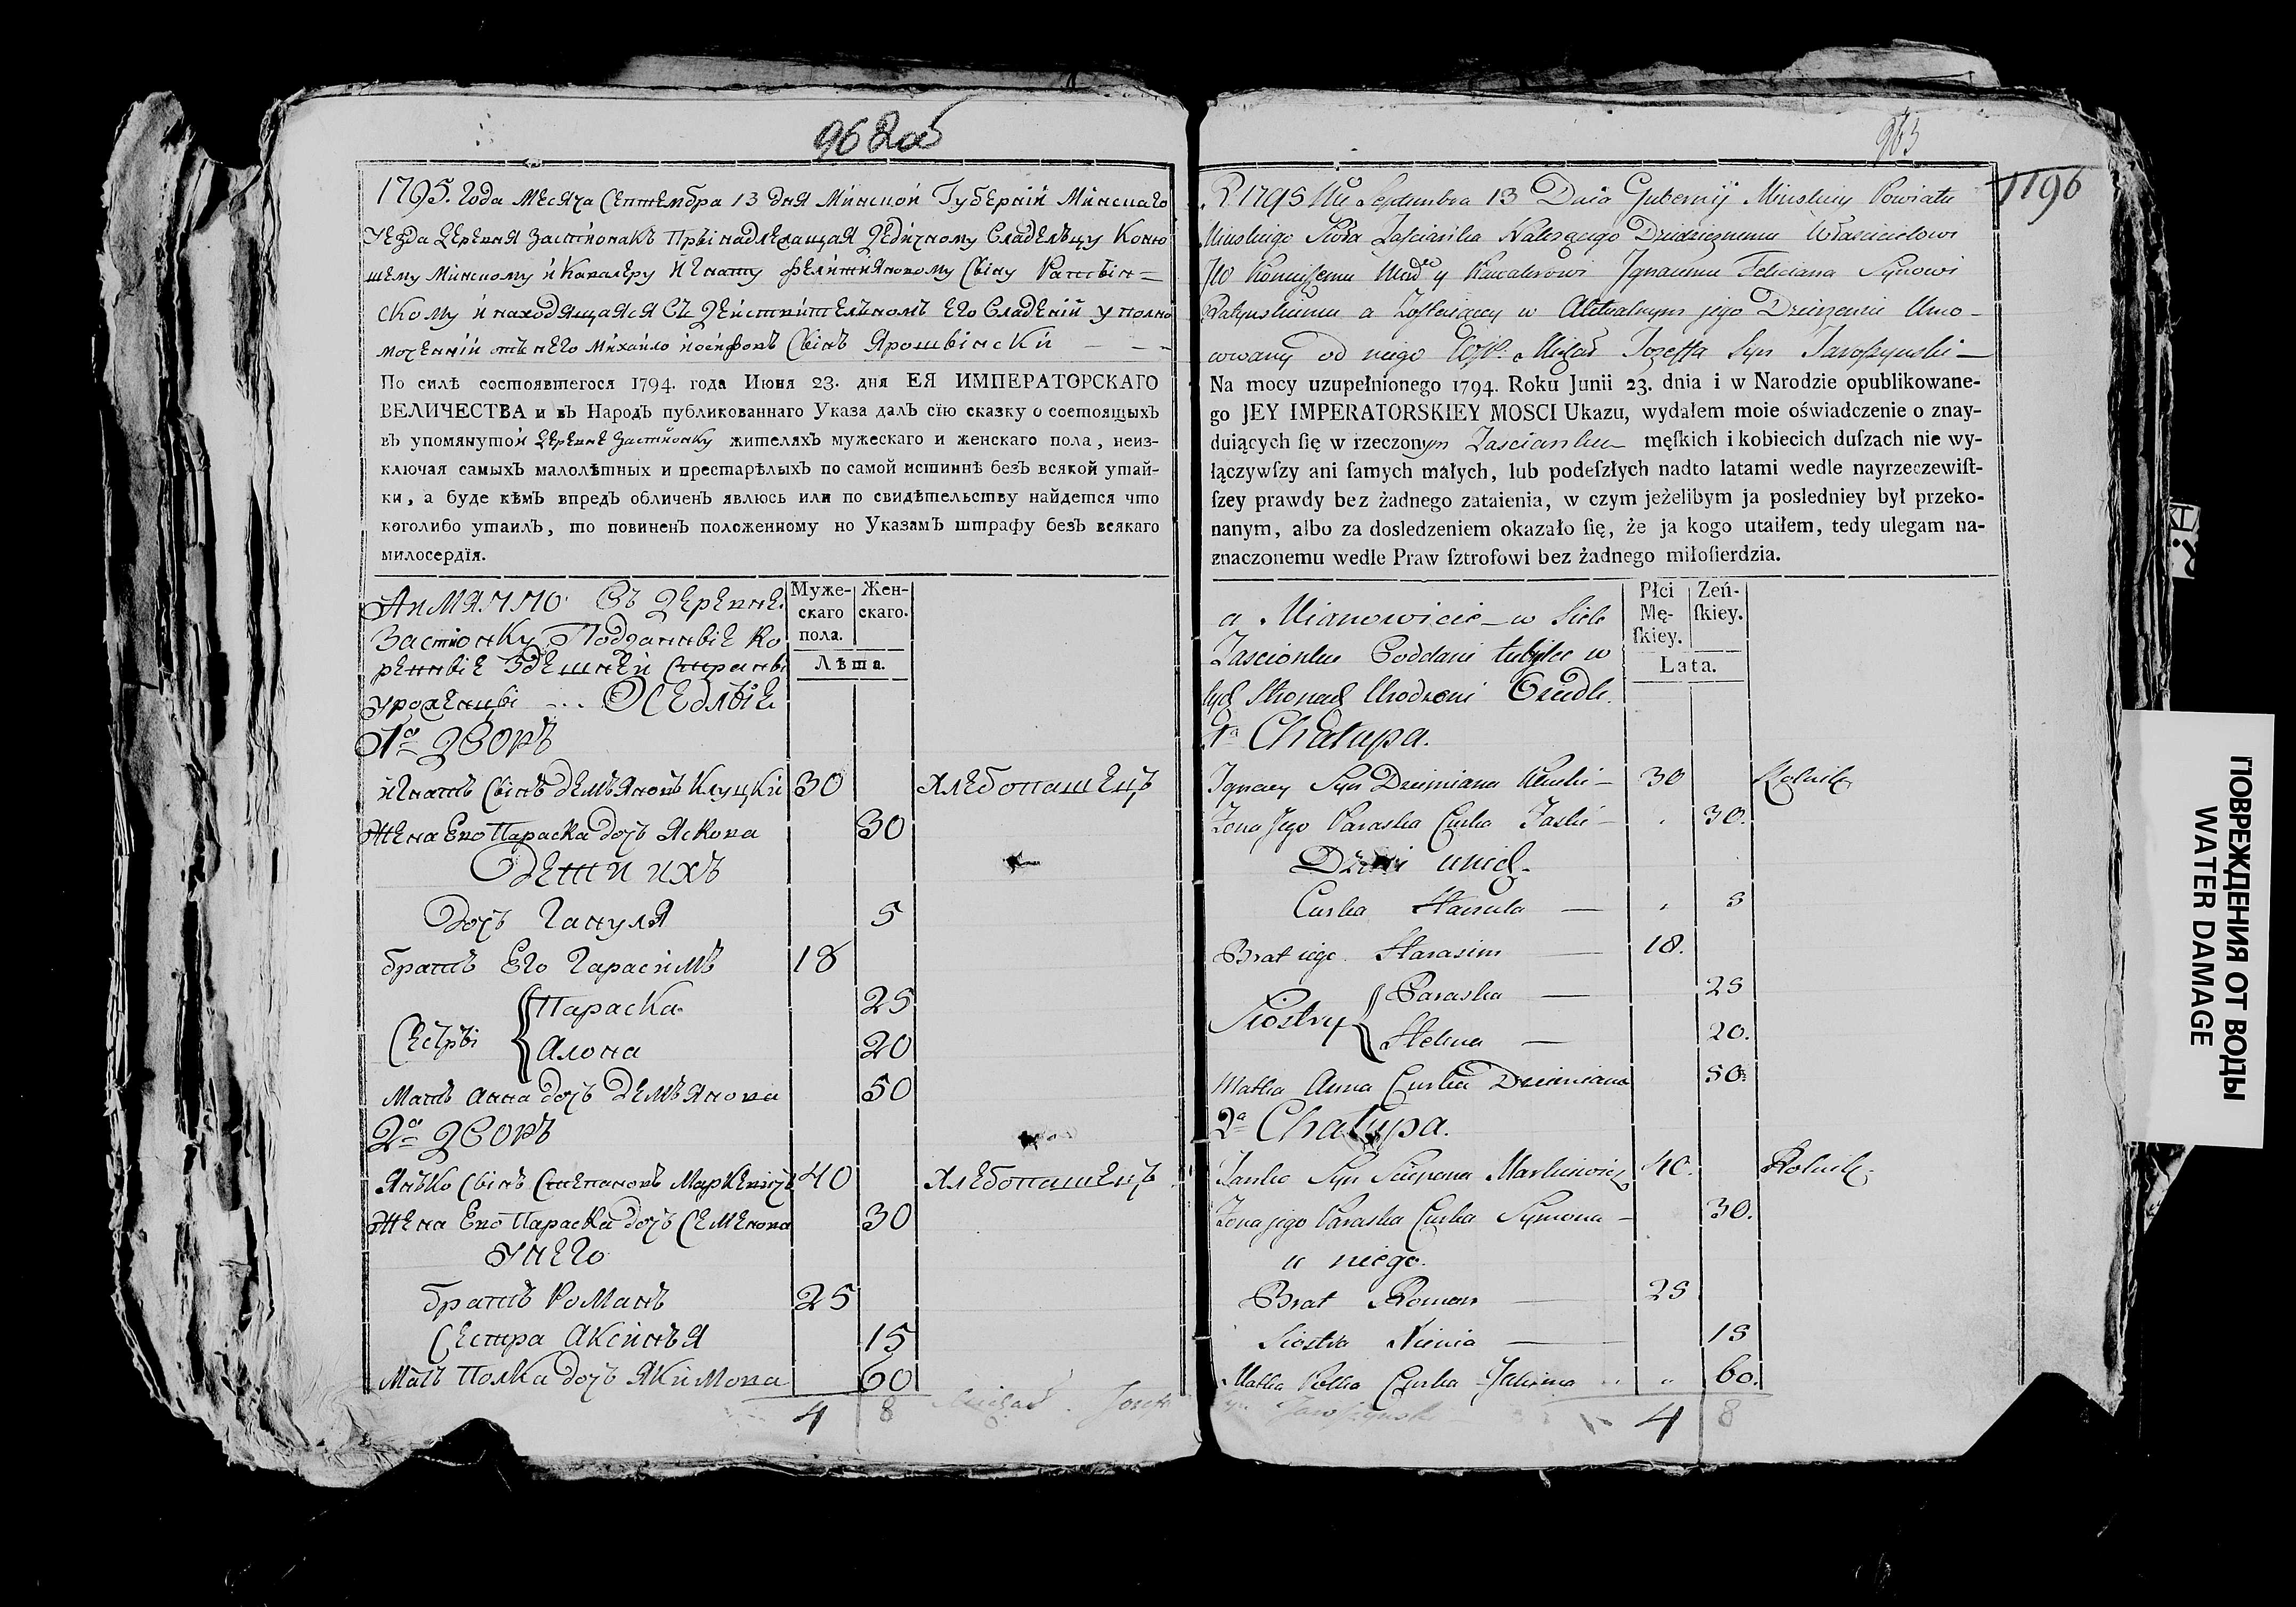 962об
1795. года месяца Септембра 13 дня Минской Губерній Минскаго
уезда деревня застіонакъ прынадлежащая дедичному владелцу Коню
шему Минскому и Кавалеру Игнату Фелитияновому сыну Ратын=
скому и находящаяся въ действителномъ его владений уполно
моченный отъ него Михайло иосифовъ сынъ Ярошынский — — —
По силѣ состоявшегося 1794. года Июня 23. дня ЕЯ ИМПЕРАТОРСКАГО
ВЕЛИЧЕСТВА и въ Народъ публикованнаго Указа далъ сїю сказку о состоящыхъ
въ упомянутой деревне застионку жителяхъ мужескаго и женскаго пола, неиз-
ключая самыхъ малолѣтныхъ и престарѣлыхъ по самой истиннѣ безъ всякой утай-
ки, а буде кѣмъ впредъ обличенъ явлюсь или по свидѣтельству найдется что
коголибо утаилъ, то повиненъ положенному по Указамъ штрафу безъ всякаго
милосердїя.
Аимянно въ деревне
Застионку Подданные ко
ренные здешней стороны
уроженцы ... Оседлые
Муже-
скаго
пола.
Жен-
скаго.
Лѣта.
1й дворъ
Игнатъ сынъ демъяновъ Клуцки 30 хлебопашецъ
Жена Ево Параска дочъ Яскова 30
Дети ихъ
Дочъ Гануля 5
братъ Его Гарасимъ 18
Сестры { Параска 25
Алона 20
Матъ Анна дочъ демъянова 50
2й дворъ
Янъко сынъ Степановъ Маркевичъ 40 хлебопашецъ
Жена Ево Параска дочъ Семенова 30
У него
братъ Романъ 25
Сестра Аксинъя 15
Матъ Полка дочъ Якимова 60
4 8
Michał Józefa
963
1196
R. 1795 Mca Septembra 13 Dnia Gubernij Minskiey Powiatu
Minskiego Sioła Zascianka Nalezącego Dziedzicznemu Własciicielowi
JW Koniuszemu Minᵐᵘ y Kawalerowi Jgnacemu Feliciana Synowi
Ratynskiemu a Zostaiący w Aktualnym jego Dzierzeniu Umo-
cowany od niego WJP. Michał Jozeffa Syn Jaroszynski —
Na mocy uzupełnionego 1794. Roku Junii 23. dnia i w Narodzie opublikowane-
go JEY IMPERATORSKIEY MOSCI Ukazu, wydałem moie oświadczenie o znay-
duiących ſię w rzeczonym Zascianku męſkich i kobiecich duſzach nie wy-
łączywſzy ani ſamych małych, lub podeſzłych nadto latami wedle nayrzeczewiſt-
ſzey prawdy bez żadnego zataienia, w czym jeżelibym ja posledniey był przeko-
nanym, albo za dosledzeniem okazało ſię, że ja kogo utaiłem, tedy ulegam na-
znaczonemu wedle Praw ſztrofowi bez żadnego miłoſierdzia.
a Mianowicie w Siele
Zascionku Poddani tubylce w
tych Stronach Urodzeni Osiedli.
Płci
Mę-
ſkiey.
Zeń-
ſkiey.
Lata.
1a Chałupa.
Jgnacy Syn Dziemiana Klucki — 30 Rolnik
Zona Jego Paraska Curka Jaski — 30.
Dzieci unich.
Curka Hanula — 5
Brat iego Harasim — 18.
Siostry { Paraska — 25
Helena — 20.
Matka Anna Curka Dziemiana 50.
2a Chałupa.
Janko Syn Sciepana Markiewicz 40. Rolnik.
Zona jego Paraska Curka Symona — 30.
u niego.
Brat Roman — 25
Siostra Xienia — 15
Matka Polka Curka Jakima 60.
4 8
Syn Jaroszynski
ПОВРЕЖДЕНИЯ ОТ ВОДЫ
WATER DAMAGE